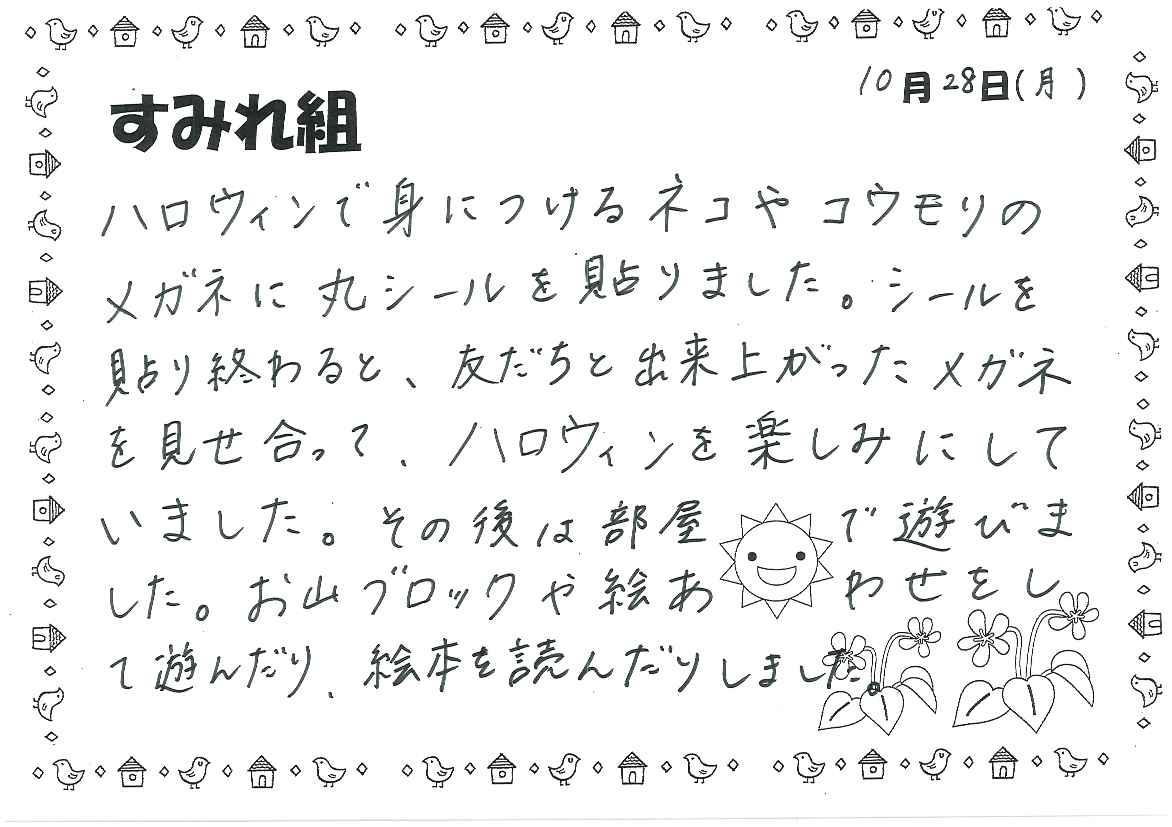 10月28日(月)
すみれ組
ハロウィンで身につけるネコやコウモリの
メガネに丸シールを貼りました。シールを
貼り終わると、友だちと出来上がったメガネ
を見せ合って、ハロウィンを楽しみにして
いました。その後は部屋で遊びま
した。お山ブロックや絵あわせをし
て遊んだり、絵本を読んだりしました。